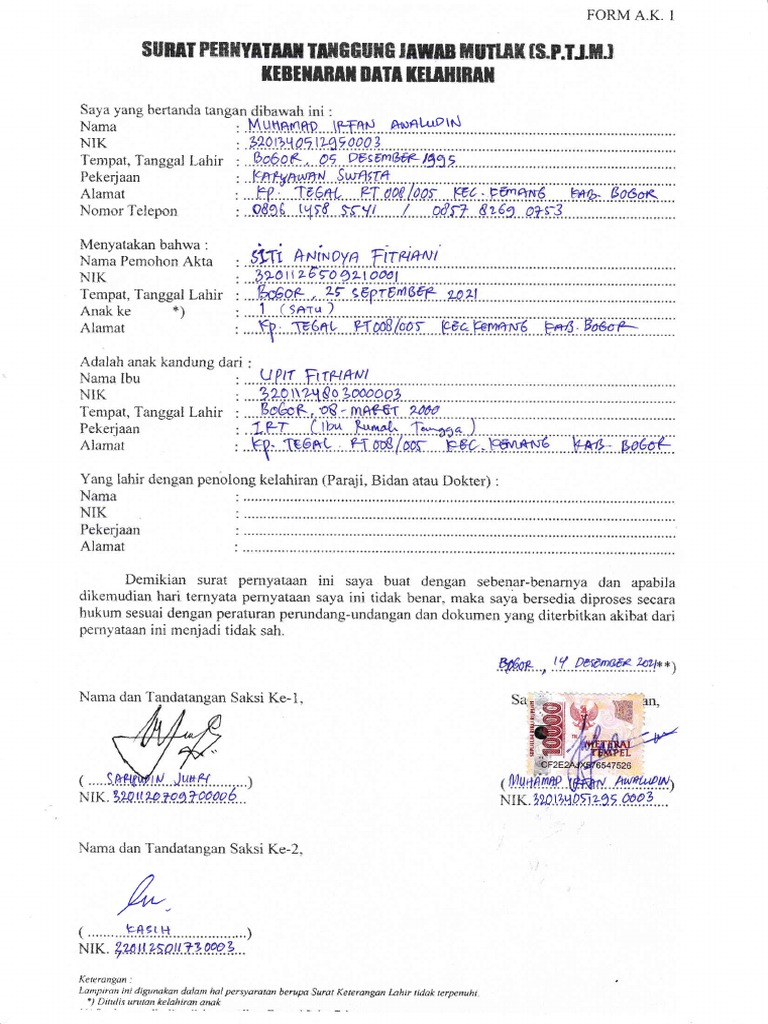 FORM A.K. 1
SURAT PERNYATAAN TANGGUNG JAWAB MUTLAK (S.P.T.J.M.)
KEBENARAN DATA KELAHIRAN
Saya yang bertanda tangan dibawah ini :
Nama : MUHAMAD IRFAN AWALUDIN
NIK : 3201340512950003
Tempat, Tanggal Lahir : BOGOR, 05 DESEMBER 1995
Pekerjaan : KARYAWAN SWASTA
Alamat : KP. TEGAL RT 008/005 KEC. KEMANG KAB. BOGOR
Nomor Telepon : 0896 1458 5541 / 0857 8269 0753
Menyatakan bahwa :
Nama Pemohon Akta : SITI ANINDYA FITRIANI
NIK : 3201126509210001
Tempat, Tanggal Lahir : BOGOR, 25 SEPTEMBER 2021
Anak ke *) : 1 (SATU)
Alamat : Kp. TEGAL RT 008/005 KEC KEMANG KAB. BOGOR
Adalah anak kandung dari :
Nama Ibu : UPIT FITRIANI
NIK : 3201124803000003
Tempat, Tanggal Lahir : BOGOR, 08 - MARET 2000
Pekerjaan : I.RT (Ibu Rumah Tangga)
Alamat : Kp. TEGAL RT 008/005 KEC. KEMANG KAB. BOGOR
Yang lahir dengan penolong kelahiran (Paraji, Bidan atau Dokter) :
Nama :
NIK :
Pekerjaan :
Alamat :
Demikian surat pernyataan ini saya buat dengan sebenar-benarnya dan apabila
dikemudian hari ternyata pernyataan saya ini tidak benar, maka saya bersedia diproses secara
hukum sesuai dengan peraturan perundang-undangan dan dokumen yang diterbitkan akibat dari
pernyataan ini menjadi tidak sah.
BOGOR, 14 DESEMBER 2021**)
Nama dan Tandatangan Saksi Ke-1,
10000
METERAI
TEMPEL
CF2E2AJX576547526
( SARIPUDIN JUHRI ) ( MUHAMAD IRFAN AWALUDIN )
NIK. 3201120709700006 NIK. 3201340512950003
Nama dan Tandatangan Saksi Ke-2,
( KASIH )
NIK. 3201125011730003
Keterangan :
Lampiran ini digunakan dalam hal persyaratan berupa Surat Keterangan Lahir tidak terpenuhi.
*) Ditulis urutan kelahiran anak